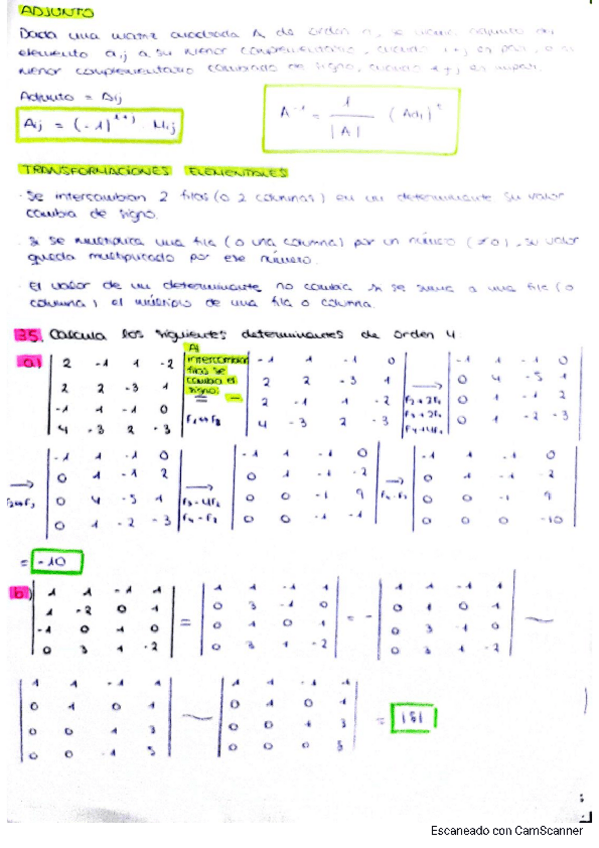 ADJUNTO
Dada una matriz cuadrada A de orden n, se llama adjunto al
elemento aij a su menor complementario, cuando i+j es par, o al
menor complementario cambiado de signo, cuando i+j es impar.
Adjunto = Aij
Aij = (-1)^i+j · Mij
A^-1 = 1 / |A| (Adj)^t
TRANSFORMACIONES ELEMENTALES
· Se intercambian 2 filas (o 2 columnas) en un determinante su valor
cambia de signo.
· Si se multiplica una fila (o una columna) por un número (≠0), su valor
queda multiplicado por ese número.
· El valor de un determinante no cambia si se suma a una fila (o
columna) el múltiplo de una fila o columna.
35. Calcula los siguientes determinantes de orden 4
a)
Al
intercambiar
filas se
cambia el
signo:
2 -1 1 -2
2 2 -3 1
-1 1 -1 0
4 -3 2 -3
= -
-1 1 -1 0
2 2 -3 1
2 -1 1 -2
4 -3 2 -3
F2+2F1
F3+2F1
F4+4F1
-1 1 -1 0
0 4 -5 1
0 1 -1 2
0 1 -2 -3
-1 1 -1 0
0 1 -1 2
0 4 -5 1
0 1 -2 -3
F3-4F2
F4-F2
-1 1 -1 0
0 1 -1 -2
0 0 -1 9
0 0 -1 -1
F4-F3
-1 1 -1 0
0 1 -1 -2
0 0 -1 9
0 0 0 -10
= -10
b)
1 1 -1 1
1 -2 0 1
-1 0 1 0
0 3 1 -2
=
1 1 -1 1
0 3 -1 0
0 1 0 1
0 3 1 -2
= -
1 1 -1 1
0 1 0 1
0 3 -1 0
0 3 1 -2
1 1 -1 1
0 1 0 1
0 0 1 3
0 0 -1 5
1 1 -1 1
0 1 0 1
0 0 1 3
=
Escaneado con CamScanner